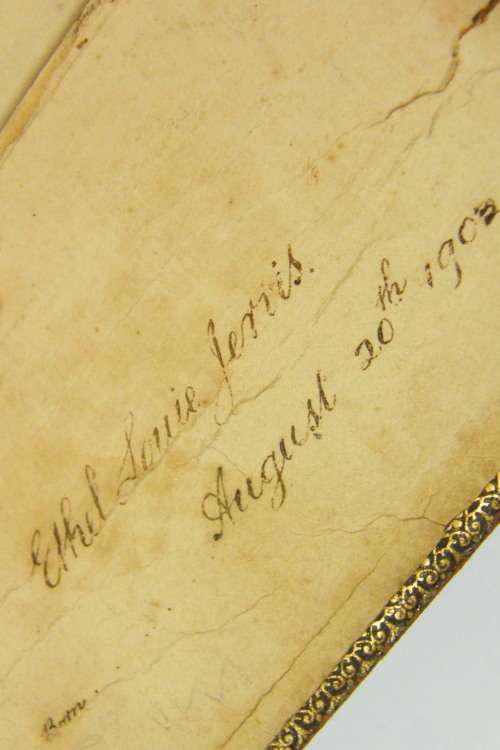 Ethel Louie Jervis.
August 20th 1903
Born